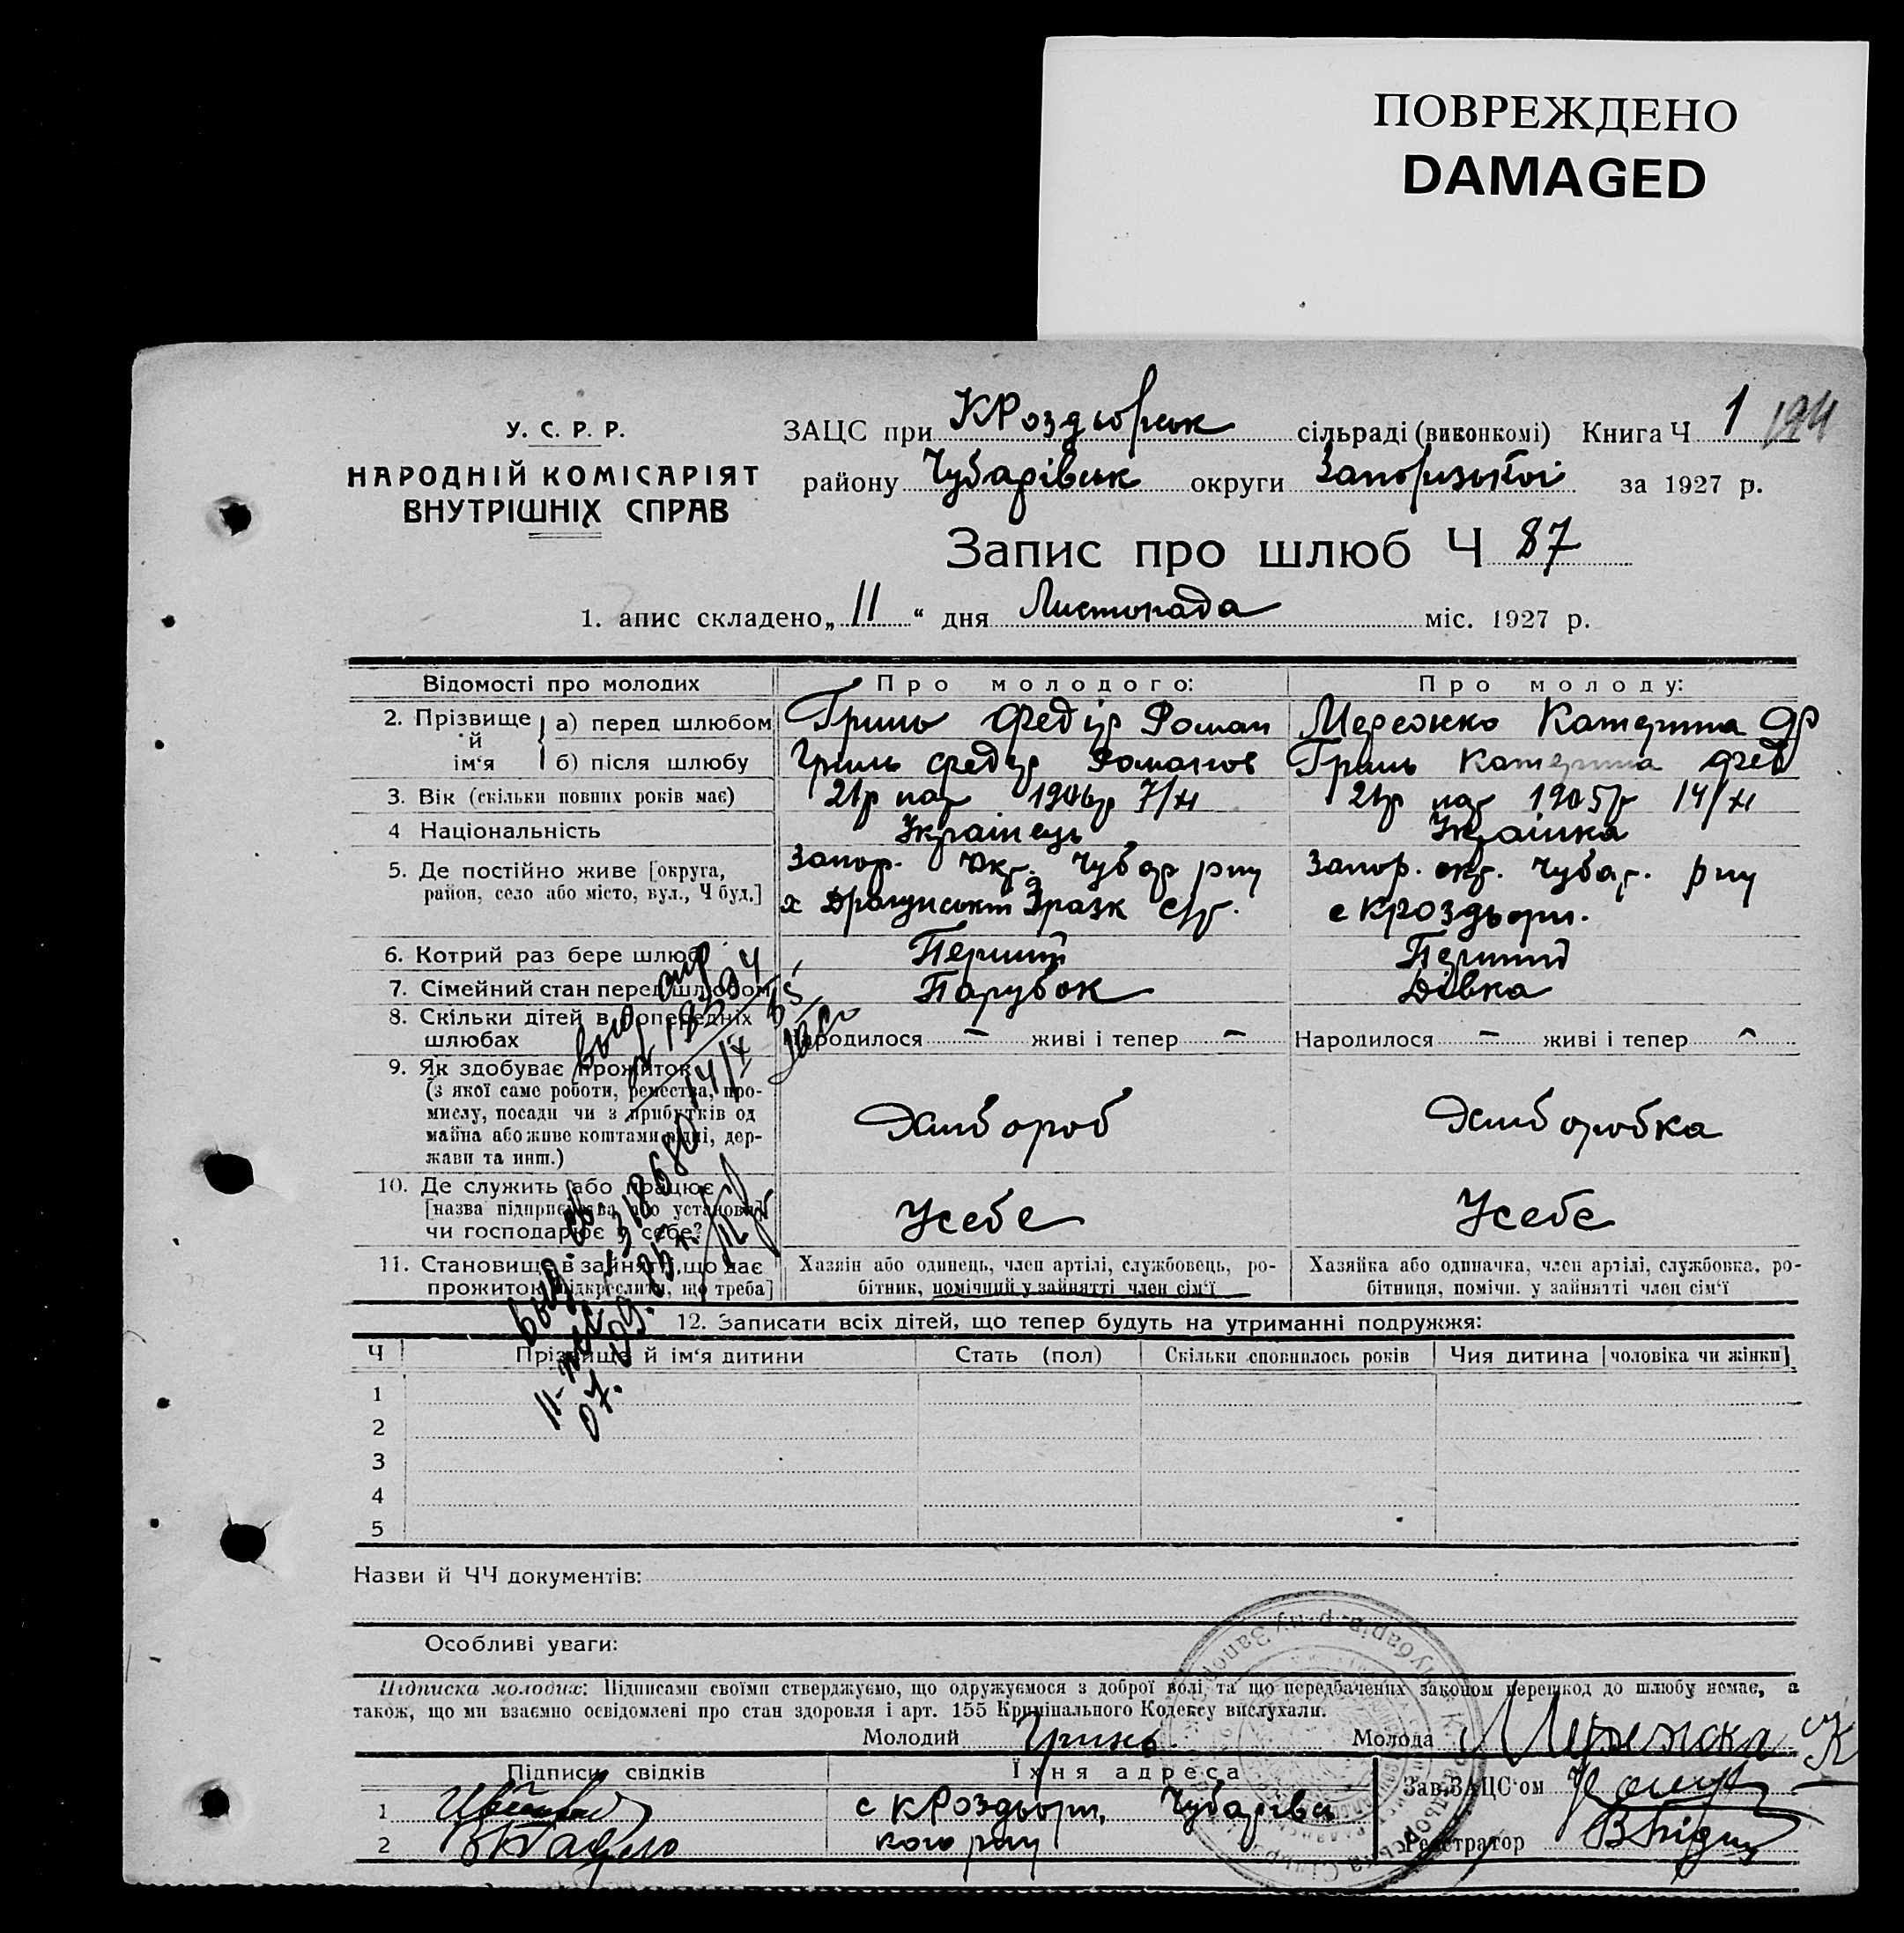 ПОВРЕЖДЕНО
DAMAGED
У. С. Р. Р.
НАРОДНІЙ КОМІСАРІЯТ
ВНУТРІШНІХ СПРАВ
ЗАЦС при КРоздьорськ сільраді (виконкомі) Книга Ч 1 194
району Чубарівськ округи Запорізької за 1927 р.
Запис про шлюб Ч 87
1. апис складено „ 11 “ дня Листопада міс. 1927 р.
Відомості про молодих Про молодого: Про молоду:
2. Прізвище й ім‘я а) перед шлюбом Гринь Федір Роман Мережко Катерина Фр
б) після шлюбу Гринь Федір Романов Гринь Катерина Фед
3. Вік (скільки повних років має) 21р нар 1906р 7/XI 21р нар 1905р 14/XI
4 Національність Українець Українка
5. Де постійно живе [округа, район, село або місто, вул., Ч буд.]
Запор. Окр. Чубар р-ну
х Драгунськт Розк с/р.
Запор. окр. Чубар. р-ну
с КРоздьорн.
6. Котрий раз бере шлюб Перший Перший
7. Сімейний стан перед шлюбом Парубок Дівка
8. Скільки дітей в попередніх шлюбах Народилося – живі і тепер – Народилося – живі і тепер –
9. Як здобуває прожиток
(з якої саме роботи, ремества, про-
мислу, посади чи з прибутків од
майна або живе коштами рідні, дер-
жави та инш.)
Хлібороб Хліборобка
10. Де служить або працює
[назва підприємства або установи]
чи господарює у себе?
У себе У себе
11. Становище в занятті, що дає
прожиток [підкреслити, що треба]
Хазяін або одинець, член артілі, службовець, ро-
бітник, помічний у зайнятті член сім‘ї
Хазяйка або одиначка, член артілі, службовка, ро-
бітниця, помічн. у зайнятті член сім‘ї
12. Записати всіх дітей, що тепер будуть на утриманні подружжя:
Ч Прізвище й ім‘я дитини Стать (пол) Скільки сповнилось років Чия дитина [чоловіка чи жінки]
1
2
3
4
5
Назви й ЧЧ документів:
Особливі уваги:
Підписка молодих: Підписами своїми стверджуємо, що одружуємося з доброї волі та що передбачених законом перешкод до шлюбу немає, а
також, що ми взаємно освідомлені про стан здоровля і арт. 155 Кримінального Кодексу вислухали.
Молодий Гринь Молода Мережка К
Підписи свідків Їхня адреса Зав. ЗАЦС‘ом
1 с КРоздьорн, Чубарівсь
2 кого р-ну Реєстратор